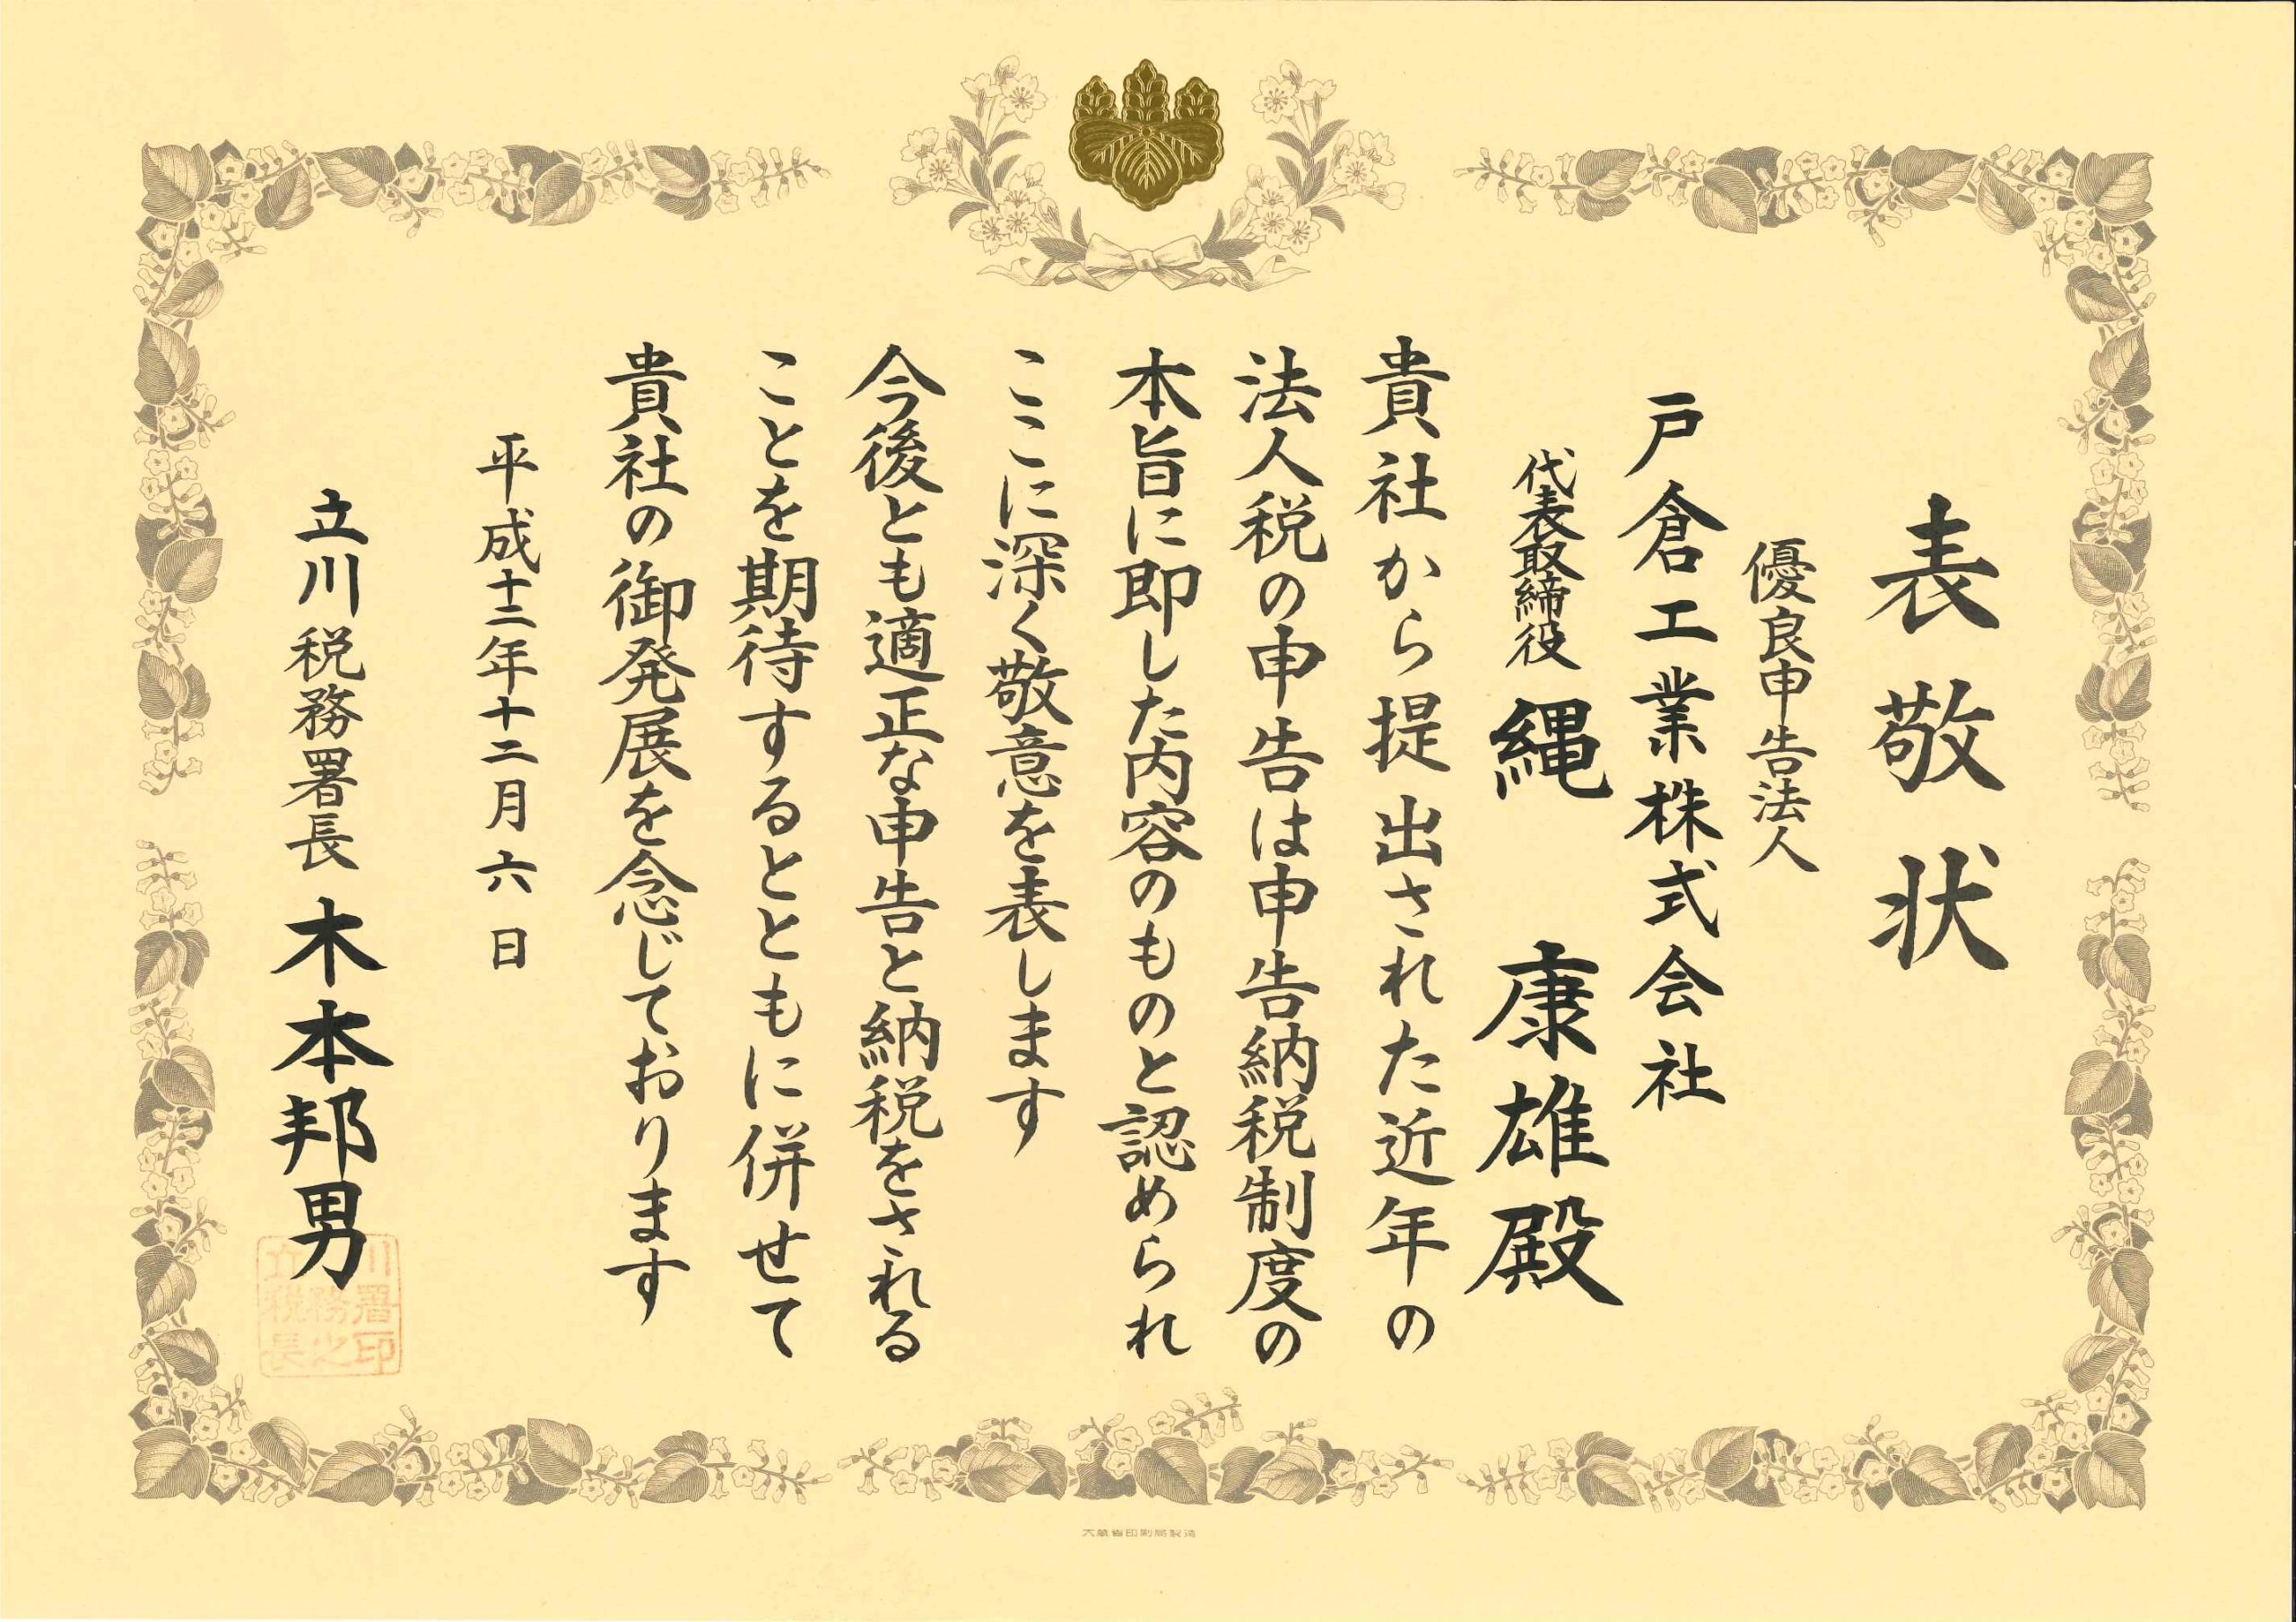 表敬状
優良申告法人
戸倉工業株式会社
代表取締役 縄 康雄殿
貴社から提出された近年の
法人税の申告は申告納税制度の
本旨に即した内容のものと認められ
ここに深く敬意を表します
今後とも適正な申告と納税をされる
ことを期待するとともに併せて
貴社の御発展を念じております
平成十二年十二月六日
立川税務署長 木本邦男
立川
税務署
長之印
大蔵省印刷局製造